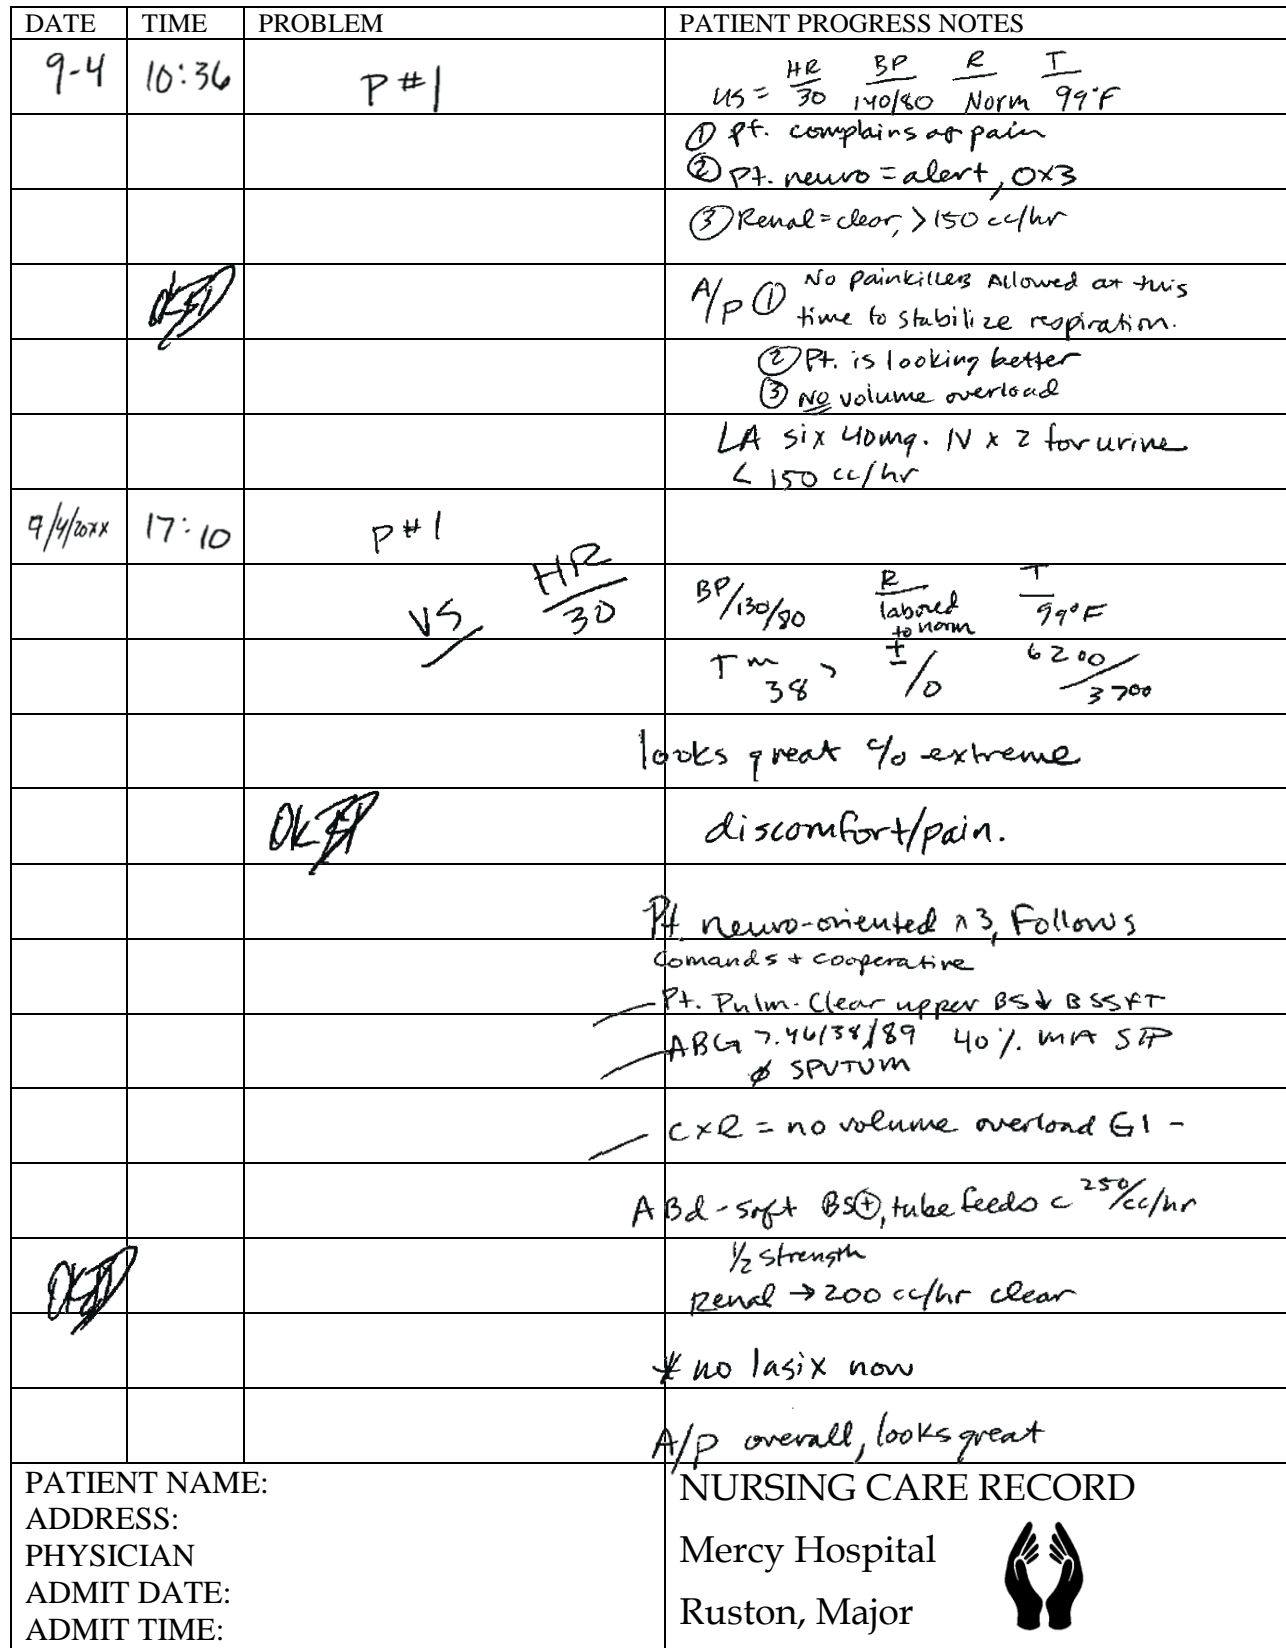 DATE TIME PROBLEM PATIENT PROGRESS NOTES
9-4 10:36 P#1 HR BP R T
VS = 30 140/80 Norm 99°F
① Pt. complains of pain
② Pt. neuro = alert, OX3
③ Renal = clear, >150 cc/hr
A/P ① No painkillers Allowed at this
time to stabilize respiration.
② Pt. is looking better
③ NO volume overload
LA six 40mg. IV x 2 for urine
< 150 cc/hr
9/4/20xx 17:10 P#1
VS HR/30 BP/130/80 R labored to norm T 99°F
Tm 38 ± /0 6200/3700
looks great c/o extreme
Ok
discomfort/pain.
Pt. neuro-oriented x3, Follows
Comands + cooperative
Pt. Pulm. Clear upper BS↓
ABG 7.46/38/89 40%.
ø SPUTUM
CXR = no volume overload GI -
ABd - soft BS⊕, tube feeds c 250/cc/hr
1/2 strength
Renal → 200 cc/hr clear
* no lasix now
A/P overall, looks great
PATIENT NAME:
ADDRESS:
PHYSICIAN
ADMIT DATE:
ADMIT TIME:
NURSING CARE RECORD
Mercy Hospital
Ruston, Major